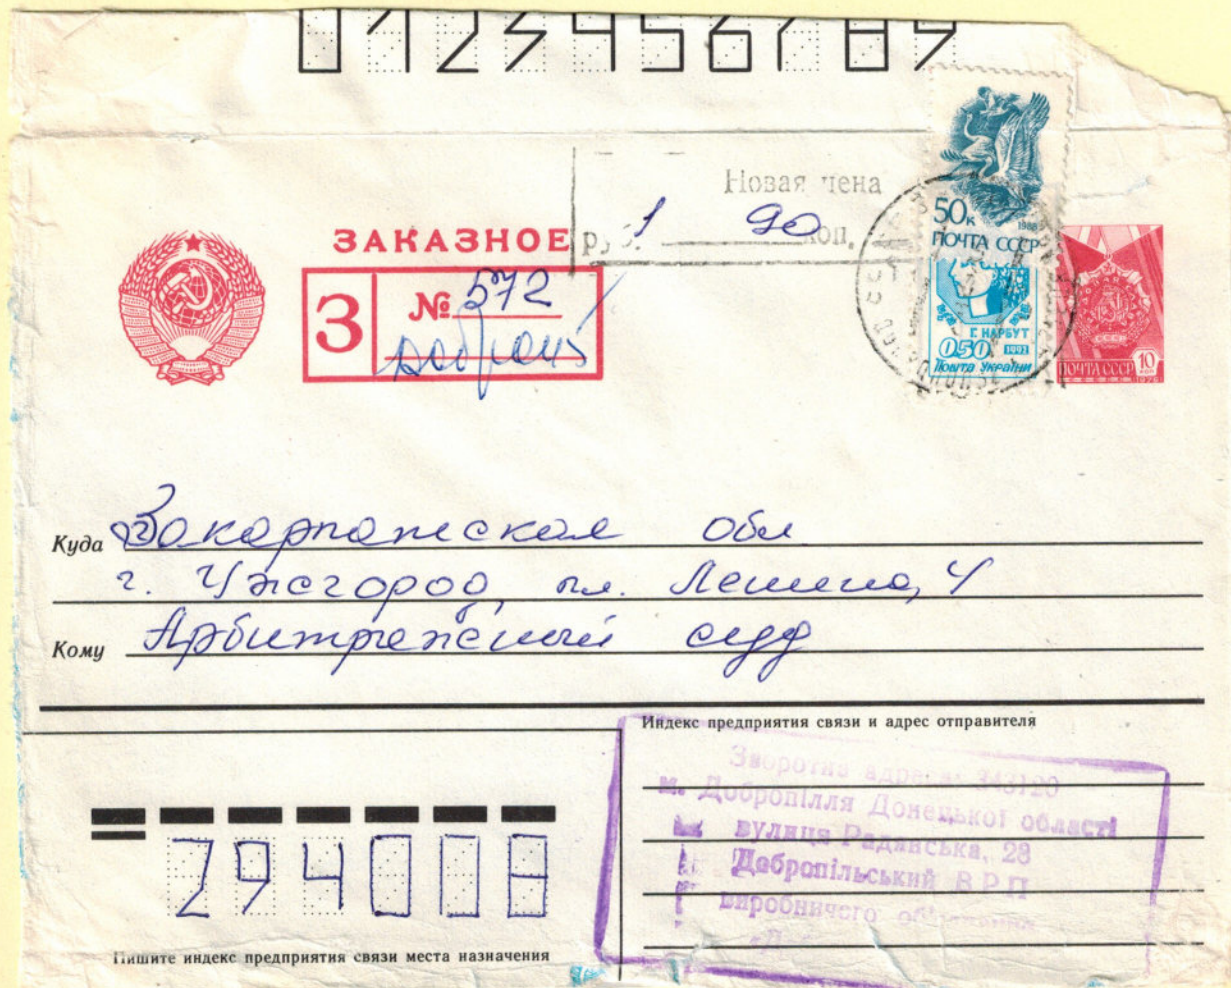 0123456789
Новая цена
руб. 1 90 коп.
ЗАКАЗНОЕ
З № 572
50к 1988
ПОЧТА СССР
Г. НАРБУТ
0.50 1992
Пошта України
СССР
10 коп
ПОЧТА СССР
Куда Закарпатская обл
г. Ужгород, пл. Ленина, 4
Кому Арбитражный суд
Индекс предприятия связи и адрес отправителя
Зворотна адреса: 343120
м. Добропілля Донецької області
вулиця Радянська, 28
Добропільський ВРП
виробничого об'єднання
294008
Пишите индекс предприятия связи места назначения